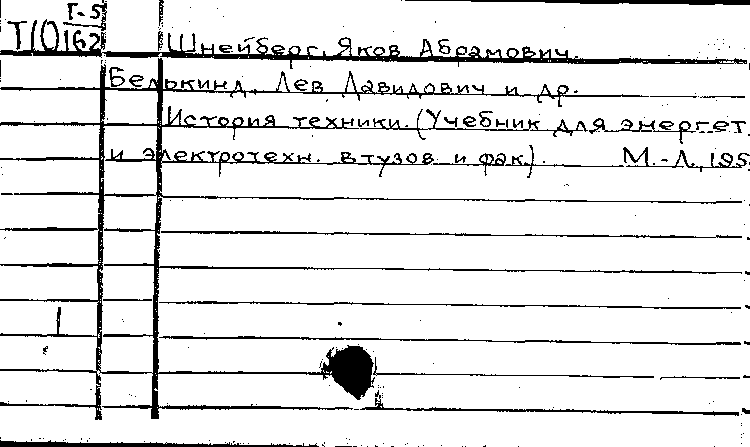 Г-5
Т10 162
Шнейберг, Яков Абрамович.
Белькинд, Лев Давидович и др.
История техники. (Учебник для энергет.
и электротехн. втузов и фак.). М.-Л., 195
1